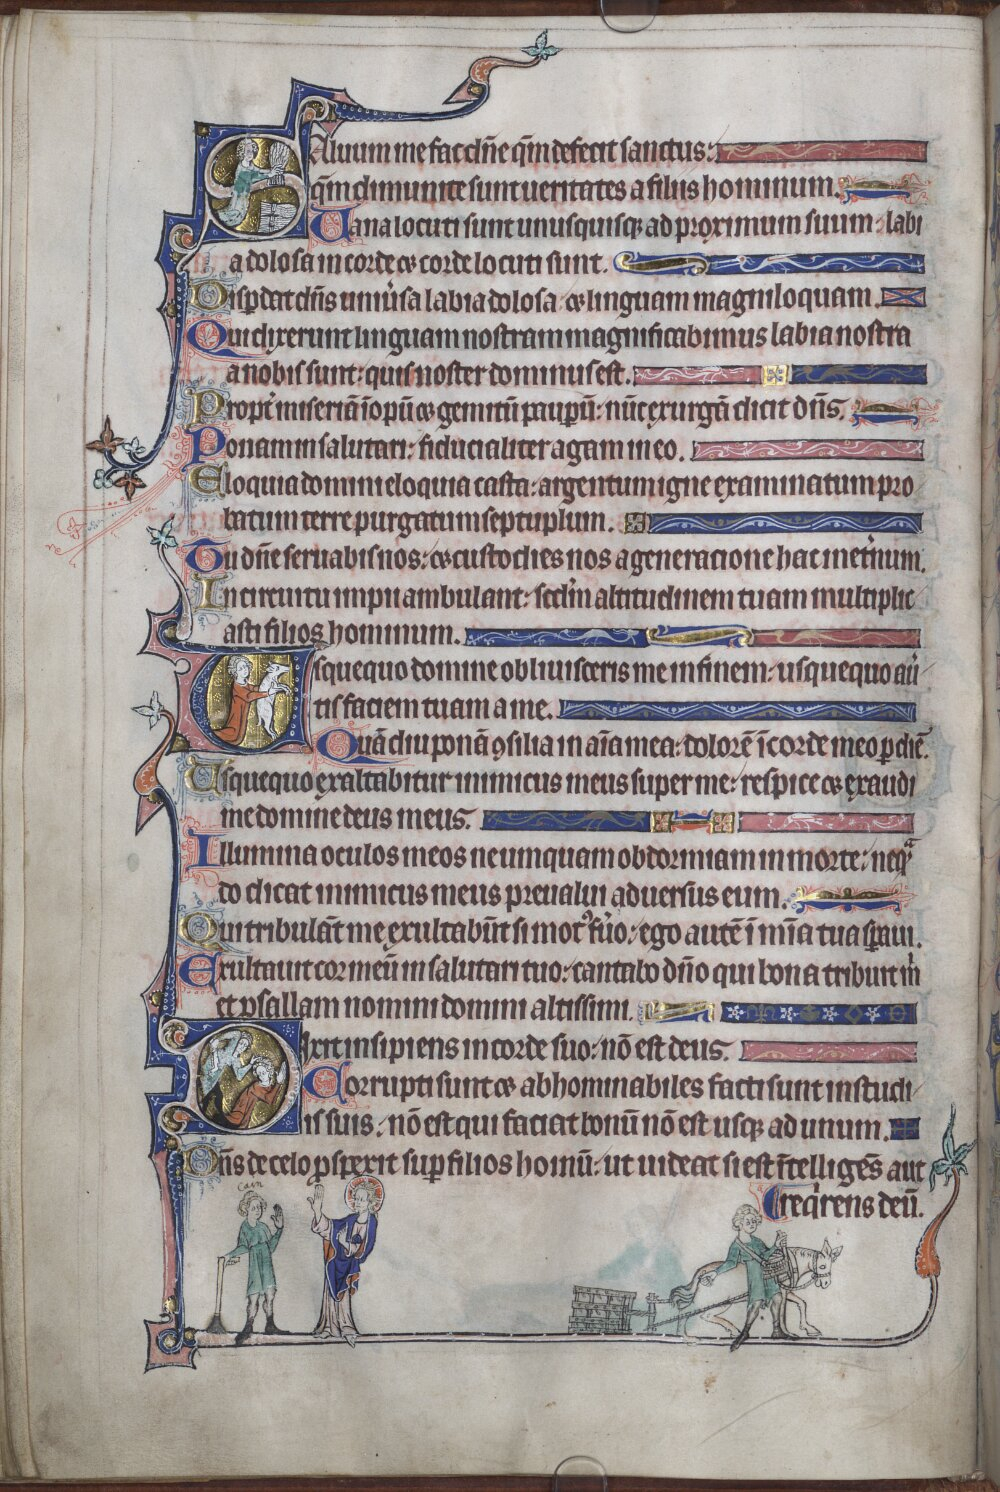 Aluum me fac dn̄e qm̄ defecit sanctus:
qm̄ diminute sunt ueritates a filiis hominum.
Uana locuti sunt unusquisq; ad proximum suum: labi
a dolosa in corde & corde locuti sunt.
Disp̄dat dn̄s uniu̓sa labia dolosa: & linguam magniloquam.
Qui dixerunt linguam nostram magnificabimus labia nostra
a nobis sunt: quis noster dominus est.
Propt̓ miseriā īopū & gemitū paup̄ū: nūc exurgā dicit dn̄s.
Ponam in salutari: fiducialiter agam in eo.
Eloquia domini eloquia casta: argentum igne examinatum pro
batum terre purgatum septuplum.
Tu dn̄e seruabis nos: & custodies nos a generacione hac inet̓num.
In circuitu impii ambulant: scd̄m altitudinem tuam multiplic
asti filios hominum.
Usquequo domine obliuisceris me infinem: usquequo au̓
tis faciem tuam a me.
Quādiu ponā ꝯsilia in aīa mea: dolorē ī corde meo p̱ diē.
Usquequo exaltabitur inimicus meus super me: respice & exaudi
me domine deus meus.
Illumina oculos meos ne umquam obdormiam in morte: neqᵃ
do dicat inimicus meus preualui aduersus eum.
Qui tribulāt me exultabūt si motꝰ fu̓o: ego autē ī mīa tua sp̄aui.
Exultauit cor meū in salutari tuo: cantabo dn̄o qui bona tribuit m̓
et psallam nomini domini altissimi.
Dixit insipiens in corde suo: nō est deus.
Corrupti sunt & abhominabiles facti sunt in studi
is suis: nō est qui faciat bonū nō est usq; ad unum.
Dn̄s de celo ꝓspexit sup̱ filios hoīnū: ut uideat si est ītelligēs aut
reqͥrens deū.
cain